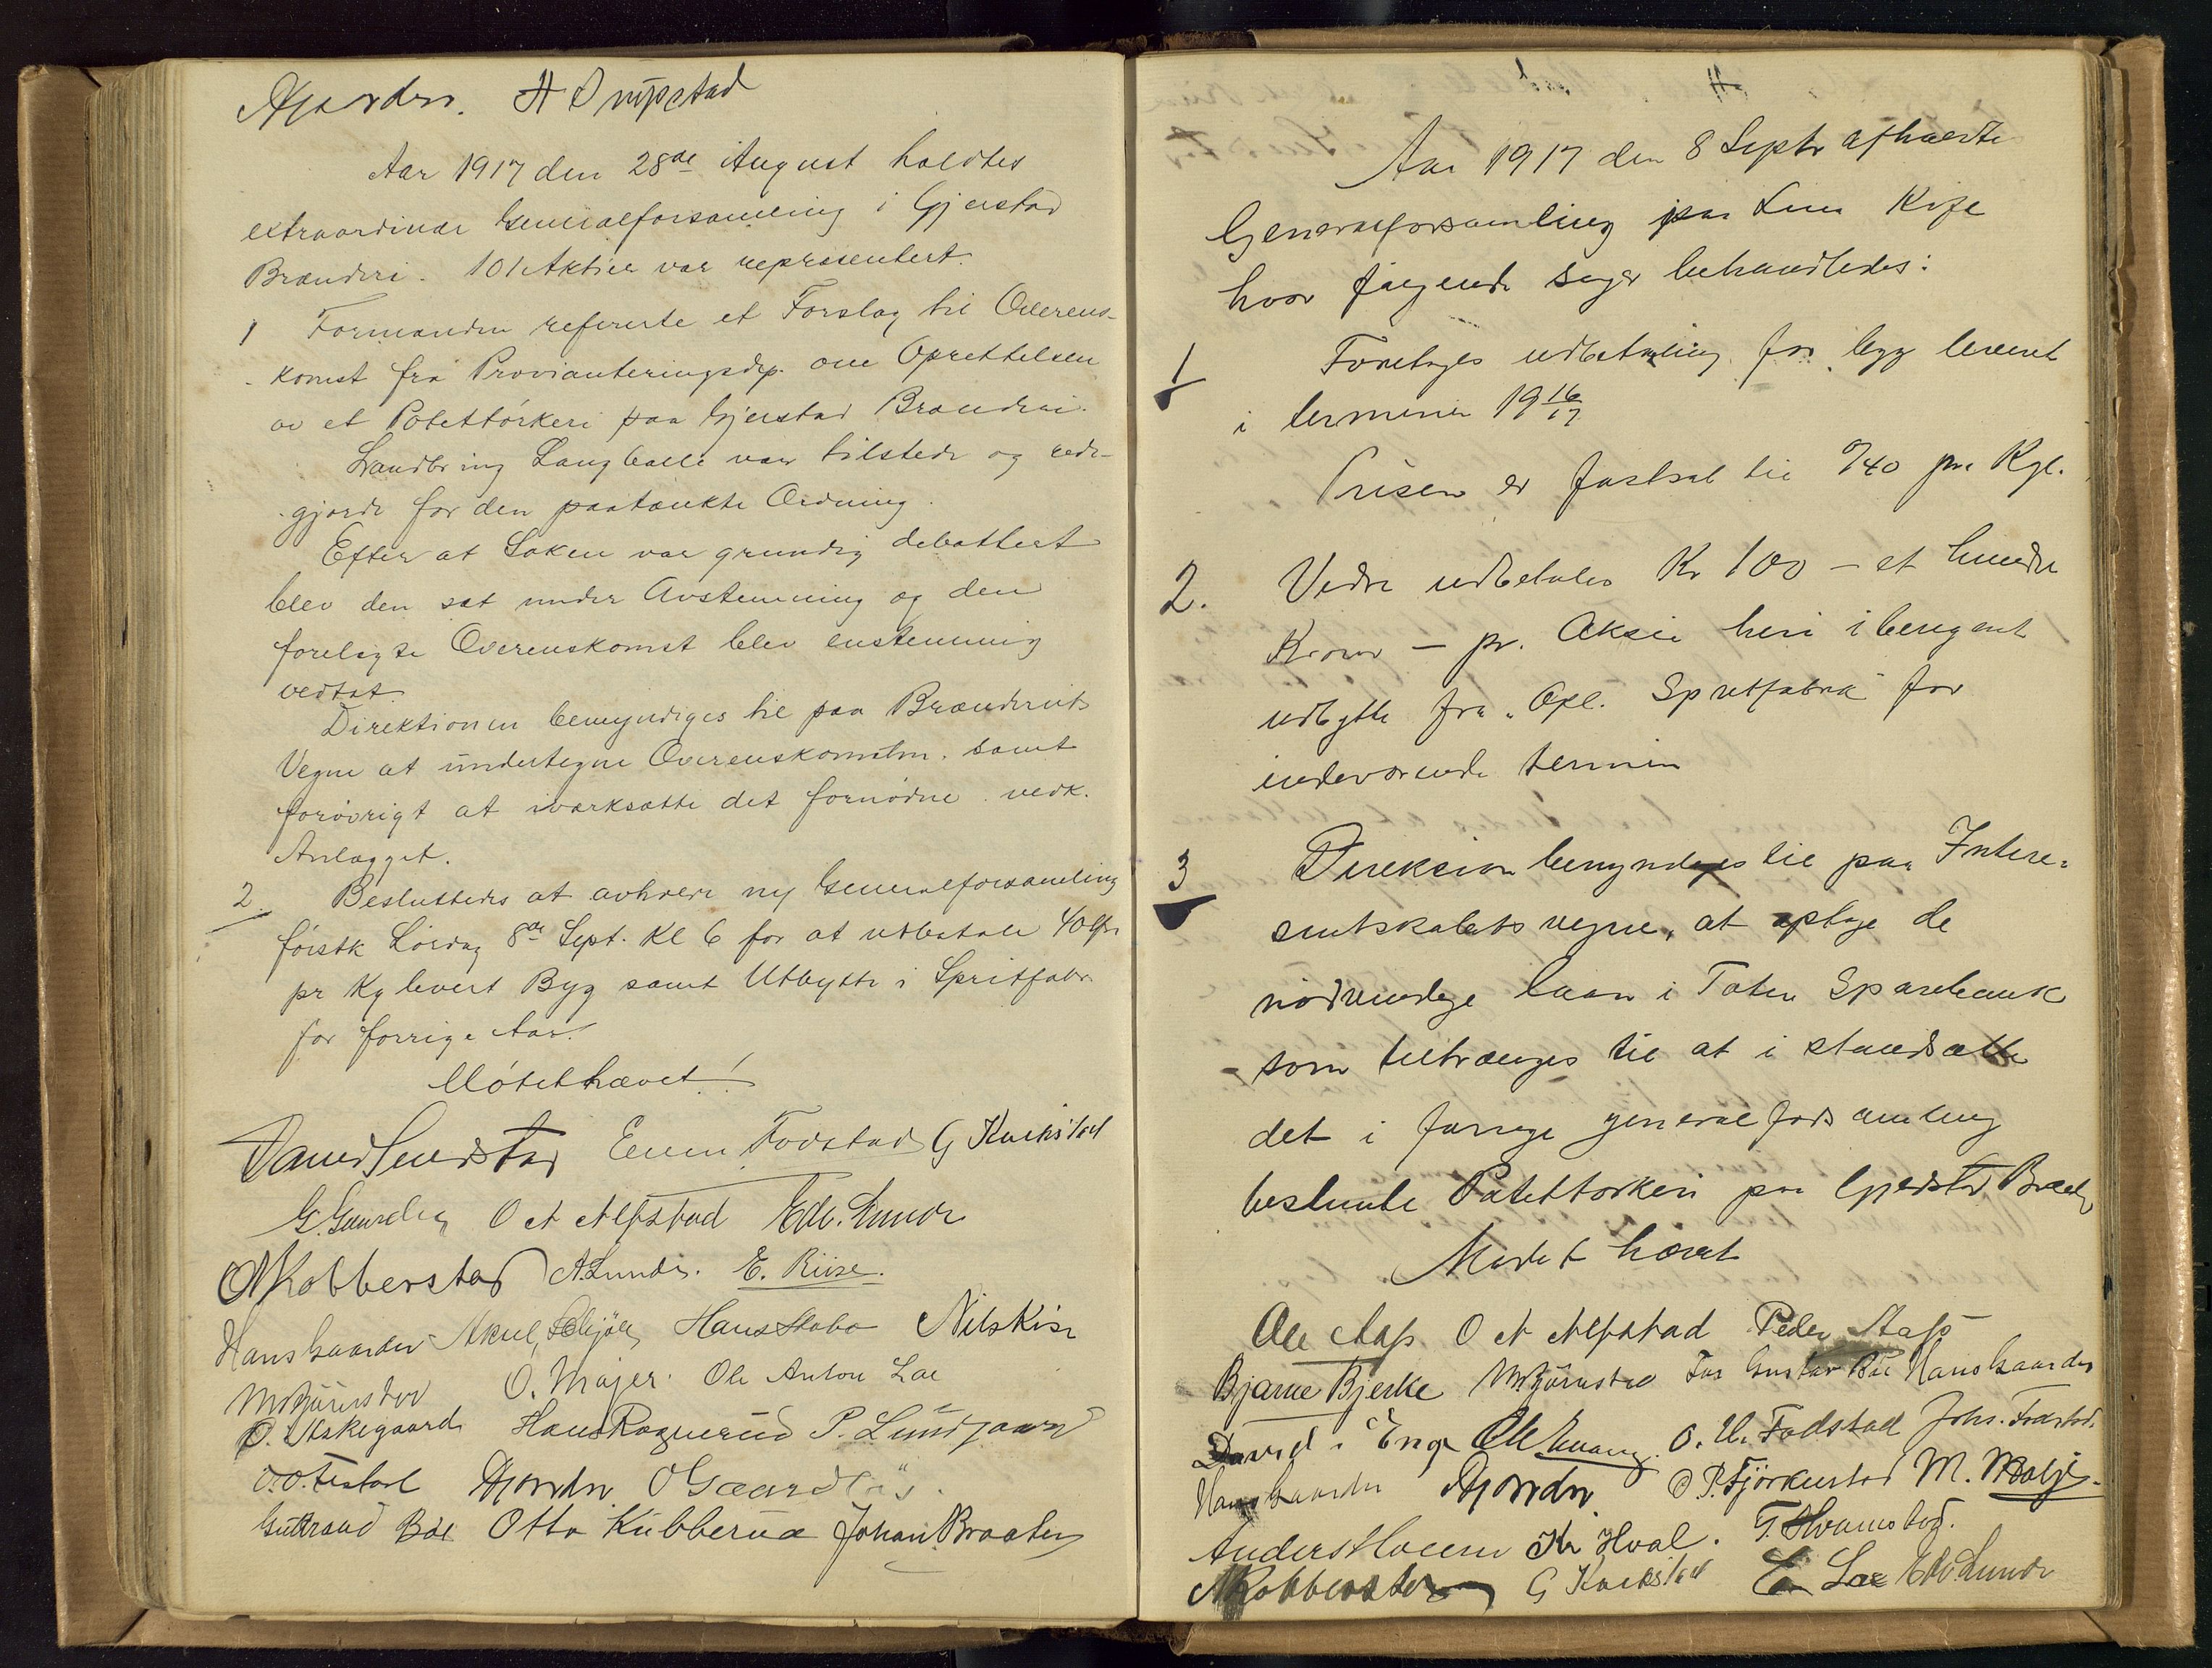 Aar 1917 den 28de August holdtes
extraordinær Generalforsamling i Gjerstad
Brænderi. 101 Aktier var repræsentert.
1 Formanden refererte et Forslag til Overens-
komst fra Provianteringsdep. om Oprettelsen
av et Potettörkeri paa Gjerstad Brænderi.
Landbr ing Langballe var tilstede og rede-
gjorde for den paatænkte Ordning.
Efter at Saken var grundig debattert
blev den sat under Avstemning og den
forelagte Overenskomst blev enstemmig
vedtat.
Direktionen bemyndiges til paa Brænderiets
Vegne at undertegne Overenskomsten samt
forövrigt at iverksætte det fornödne vedk.
Anlægget.
2 Besluttedes at avholde ny Generalforsamling
förstk Lördag 8de Sept. Kl 6 for at utbetale 40 Öre
pr Kg levert Byg samt Utbytte i Spritfabr.
for forrige Aar.
Mötet hævet!
Enm Fodstad G Kvikstad
G. Gaarder O A Alfstad Edv. Lunde
Kobberstad A. Lunde. E. Riise.
Hans Gaarder Hans Skabo Nils Kise
M Björnstad O. Majer. Ole Anton Lae
O. Askegaard Hans Rognerud P. Lundgaard
Guttrand Böe Otto Kubberud Johan Braaten
Aar 1917 den 8 Septr afholdte
Generalforsamling paa Lena Kafe
hvor fölgende sager behandledes:
1 Foretages udbetaling for byg leveret
i terminen 19 16/17
Prisen er fastsat til 0/40 pr. Kgl.
2. Videre udbetales Kr 100 – et hundre
Kroner – pr. Aksie heri iberegnet
udbytte fra "Opl. Spritfabrik for
indeværende termin
3 Direksion bemyndiges til paa Intere-
sentskabets vegne, at optage de
nödvendige laan i Toten Sparebank
som tiltrænges til at i standsætte
det i forrige generalforsamling
bestemte Potettörkeri paa Gjerstad Brænderi
Mödet hævet
Ole Aas O A Alfstad Peder Aas
Bjarne Bjerke M Björnstad for Gustav Böe Hans Gaarder
David i Enge O. H. Fodstad Johs. Fodstad.
Hans Gaarder O. P. Fjörkenstad M. Molje.
Anders Hoven Kr Hval.
Kobberstad G Kvikstad E Lae Edv Lunde